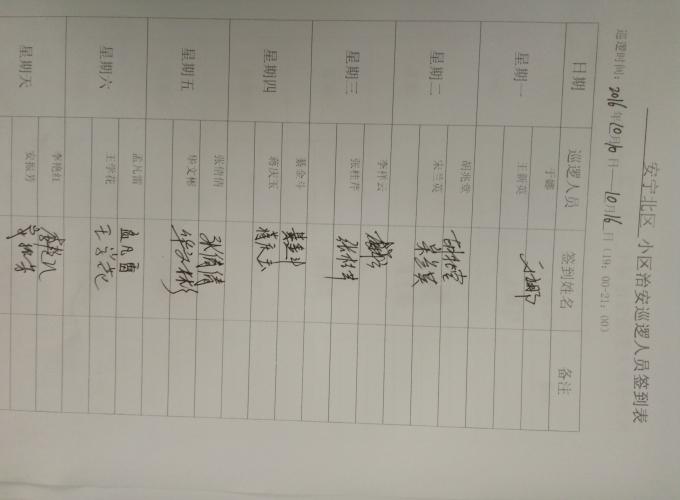 安宁北区 小区治安巡逻人员签到表
巡逻时间：2016年10月10日 10月16日（19：00-21：00）
日期 巡逻人员 签到姓名 备注
星期一 于娜 于娜
王新英
星期二 胡兆堂 胡兆堂
宋兰英 宋兰英
星期三 李梓云
张桂芹 张桂芹
星期四 綦金斗 綦金斗
蒋庆玉 蒋庆玉
星期五 张倩倩 张倩倩
华文彬 华文彬
星期六 孟凡雷 孟凡雷
王学花 王学花
星期天 李艳红 李艳红
安振芳 安振芳